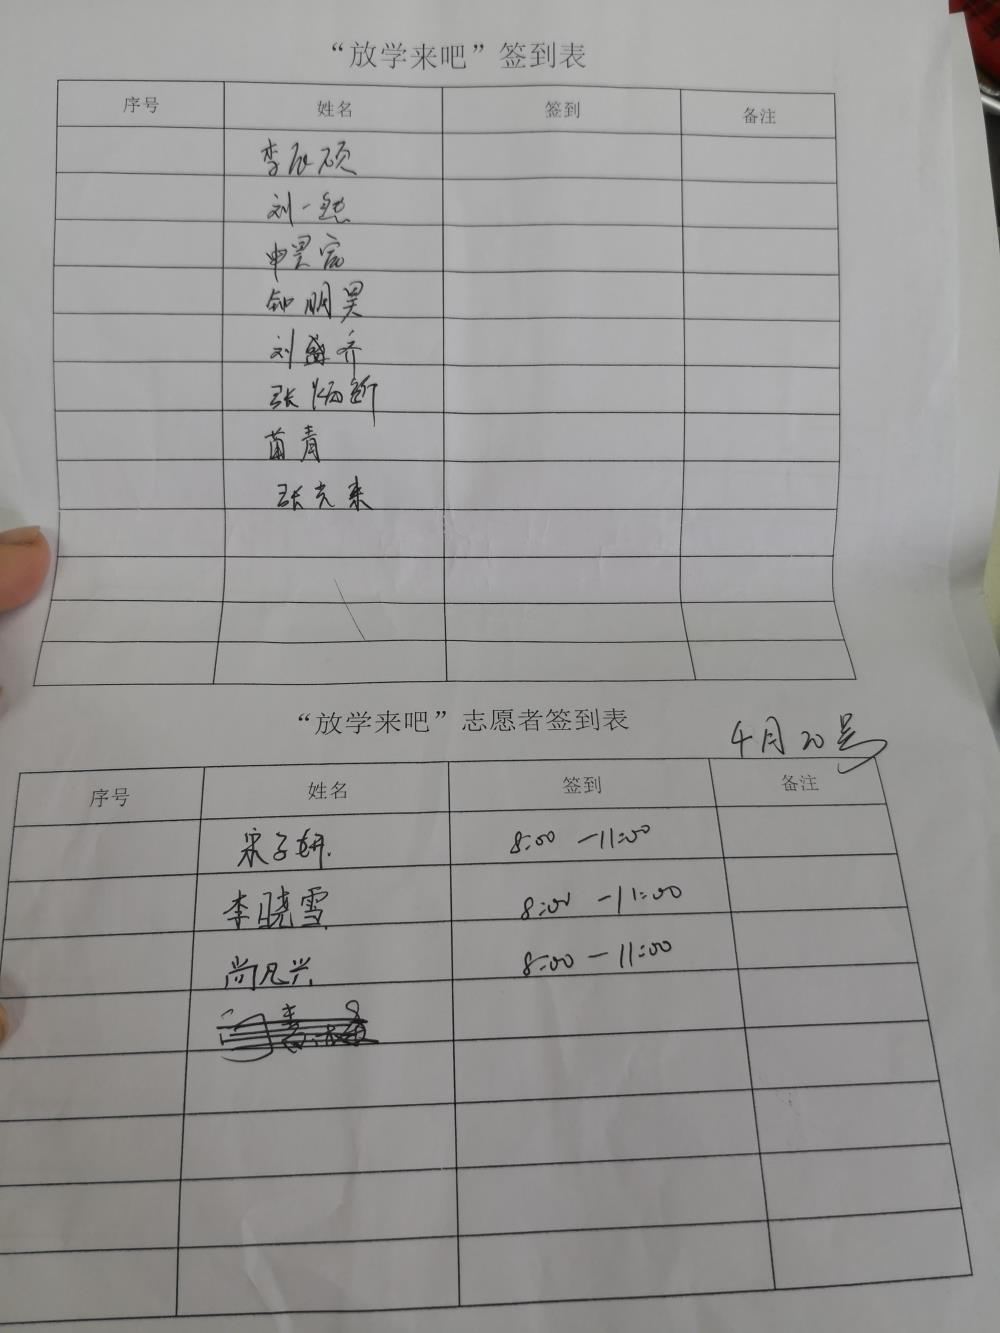 “放学来吧”签到表
序号 姓名 签到 备注
李辰硕
刘一然
申昊宸
钟明昊
刘盛齐
张炳新
苗青
张克来
“放学来吧”志愿者签到表
4月20号
序号 姓名 签到 备注
宋子妍 8:00 -11:00
李晓雪 8:00 -11:00
尚凡兴 8:00 -11:00